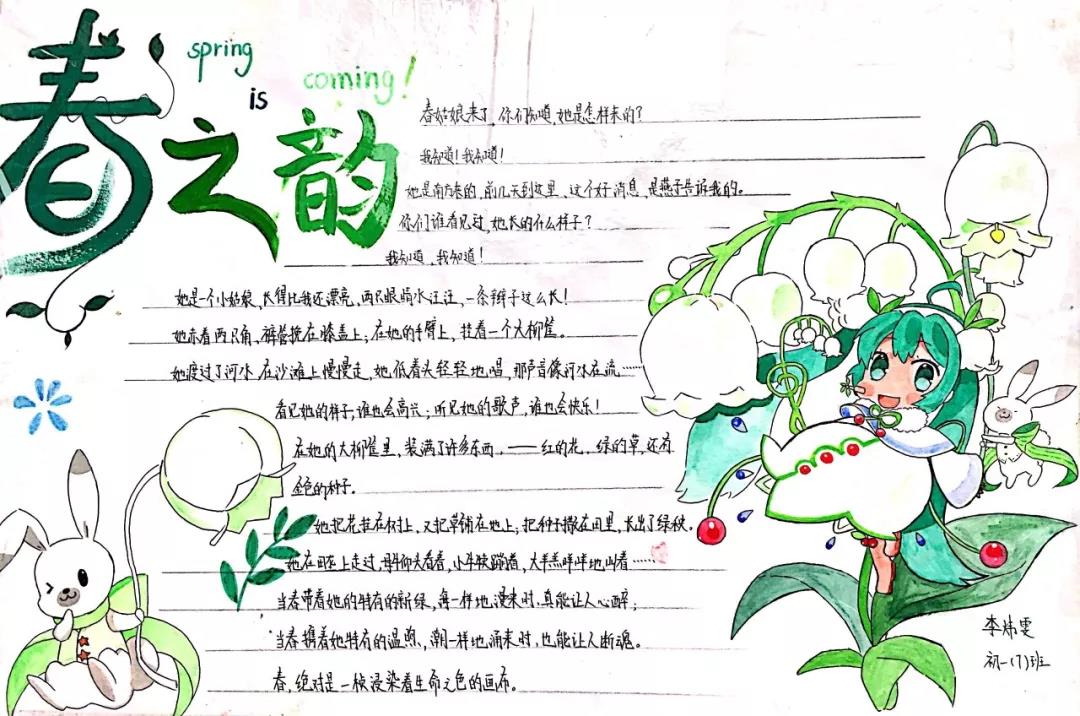 春之韵
spring
is
coming!
春姑娘来了，你们知道，她是怎样来的？
我知道！我知道！
她是南方来的，前几天到这里，这个好消息，是燕子告诉我的。
你们谁看见过，她长的什么样子？
我知道，我知道！
她是个小姑娘，长得比我还漂亮，两只眼睛水汪汪，一条辫子这么长！
她赤着两只脚，裤管挽在膝盖上；在她的手臂上，挂着一个大柳筐。
她渡过了河水，在沙滩上慢慢走，她低着头轻轻地唱，那声音像河水在流……
看见她的样子，谁也会高兴；听见她的歌声，谁也会快乐！
在她的大柳筐里，装满了许多东西，——红的花，绿的草，还有
金色的种子。
她把花挂在树上，又把草铺在地上，把种子撒在田里，长出了绿秧。
她在田垄上走过，母牛仰头看着，小牛快蹦着，大羊羔咩咩地叫着……
当春带着她的特有的新绿，海一样地漫来时，真能让人心醉；
当春携着她特有的温煦，潮一样地涌来时，也能让人断魂。
春，绝对是一桢浸染着生命之色的画布。
李炜雯
初一(7)班